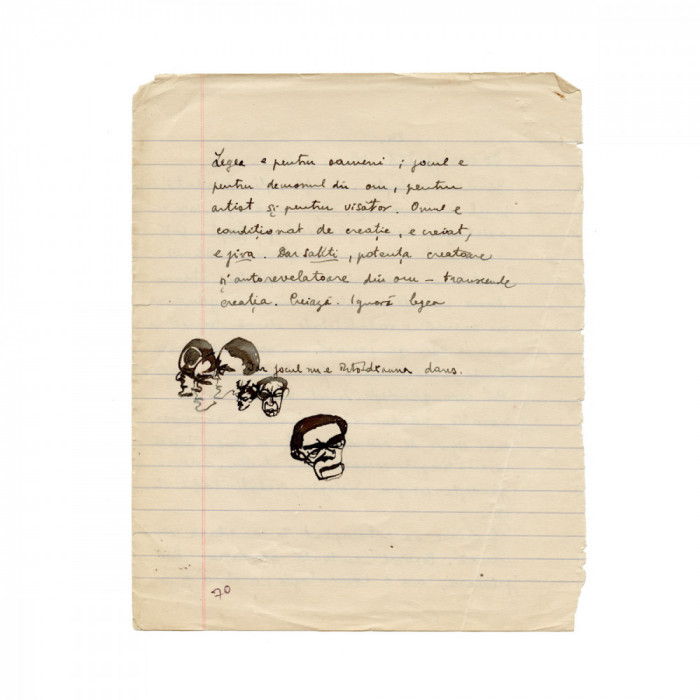 Legea e pentru oameni; jocul e
pentru demonul din om, pentru
artist și pentru visător. Omul e
condiționat de creație, e creiat,
e jiva. Dar sakti, potența creatoare
și autorevelatoare din om – transcende
creația. Creiază. Ignoră legea
Dar jocul nu e întotdeauna dans.
70